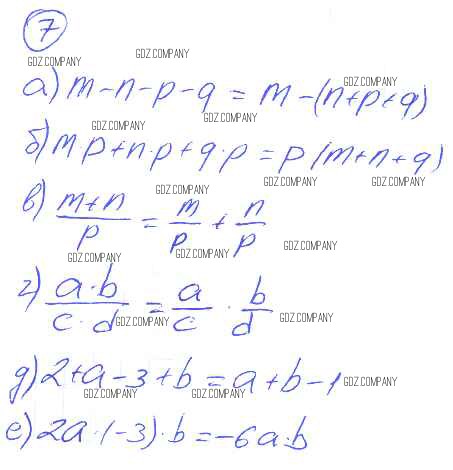 7
GDZ.COMPANY
GDZ.COMPANY
GDZ.COMPANY
а) m - n - p - q = m - (n + p + q)
GDZ.COMPANY
GDZ.COMPANY
б) m p + n·p + q·p = p (m + n + q)
GDZ.COMPANY
GDZ.COMPANY
GDZ.COMPANY
в) \frac{m+n}{p} = \frac{m}{p} + \frac{n}{p}
GDZ.COMPANY
GDZ.COMPANY
GDZ.COMPANY
г) \frac{a·b}{c·d} = \frac{a}{c} · \frac{b}{d}
GDZ.COMPANY
GDZ.COMPANY
д) 2 + a - 3 + b = a + b - 1
GDZ.COMPANY
GDZ.COMPANY
GDZ.COMPANY
е) 2a·(-3)·b = -6a·b